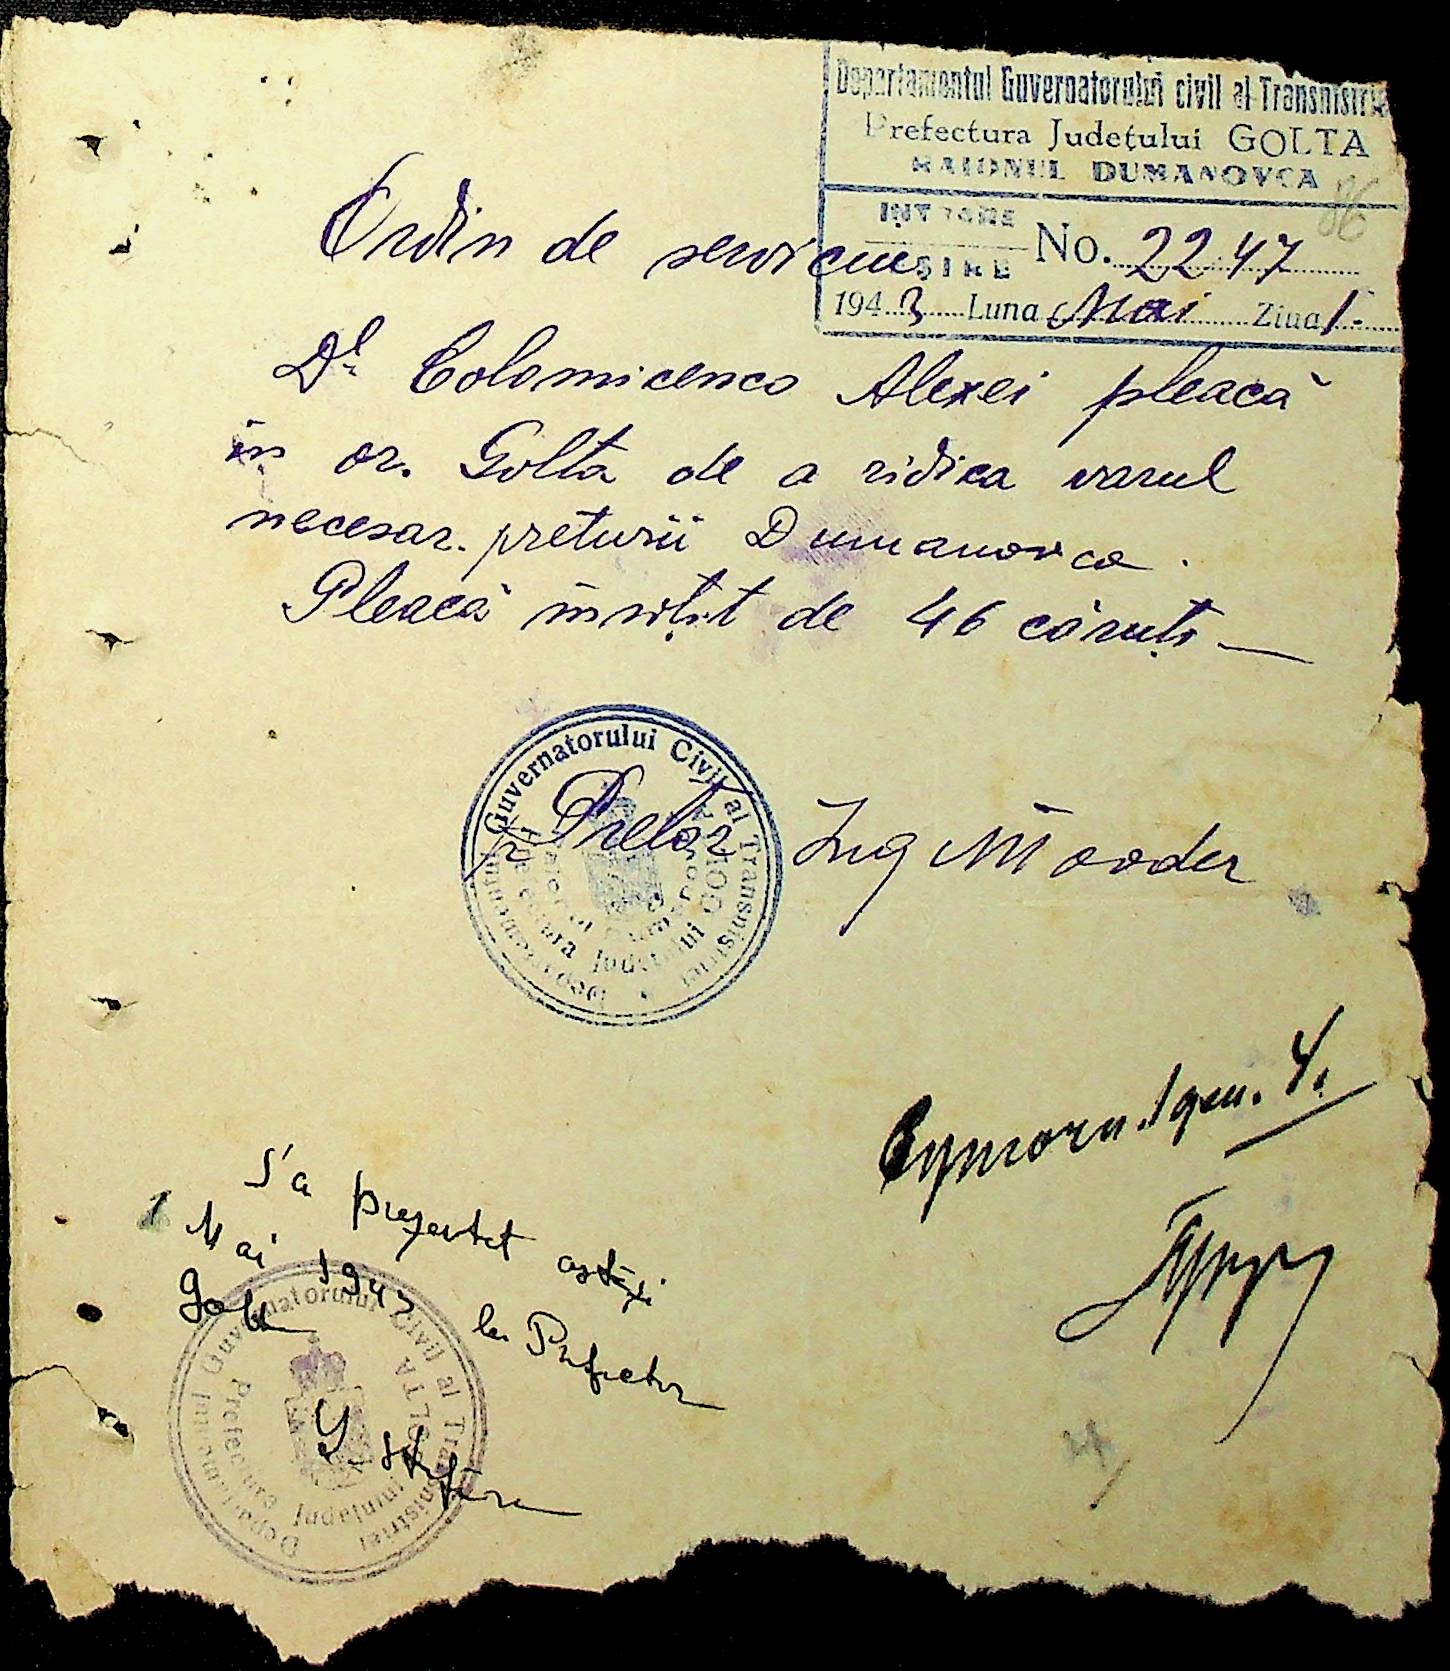 Departamentul Guvernatorului civil al Transnistri
Prefectura Județului GOLTA
RAIONUL DUMANOVCA
86
INTRARE
IEȘIRE
No. 2247
1943 Luna Mai Ziua 1.
Ordin de serviciu
Dl. Colomicenco Alexei pleacă
în or. Golta de a ridica varul
necesar. preturii Dumanovca.
Pleacă însoțit de 46 căruți —
Departamentul Guvernatorului Civil al Transnistriei
Prefectura Județului GOLTA
p Pretor Ing
S'a prezentat astăzi
1 Mai 1943 la Prefectura
Golta
Departamentul Guvernatorului Civil al Transnistriei
Prefectura Județului GOLTA